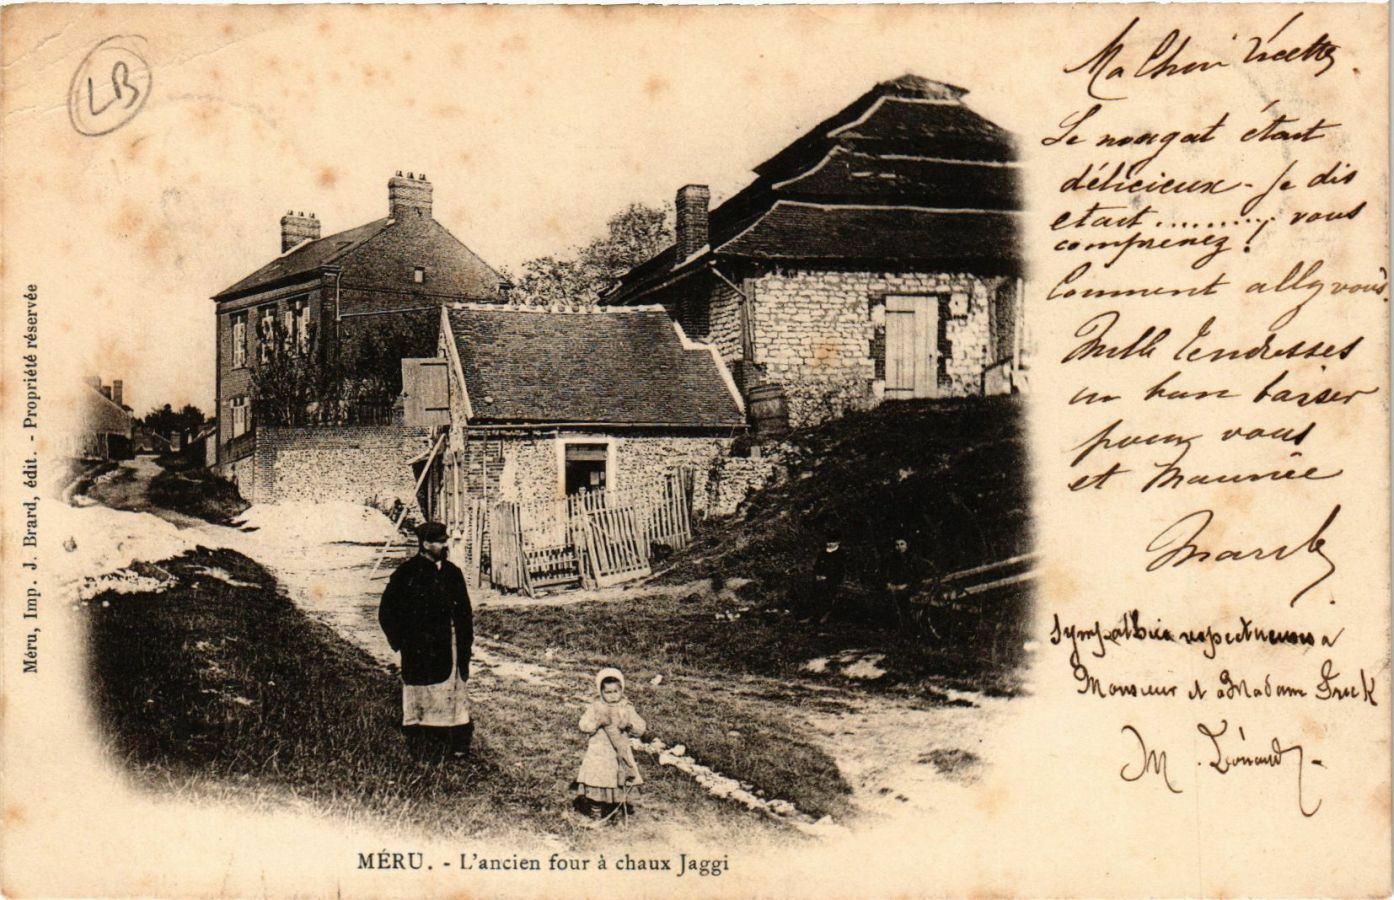 LB
Ma Chère
Le nougat était
délicieux - Je dis
était .......... vous
comprenez !
Comment allez vous
Mille tendresses
un bon baiser
pour vous
et Maurice
Sympathies respectueuses à
Monsieur et à Madame
M.
MÉRU. - L'ancien four à chaux Jaggi
Méru, Imp. J. Brard, édit. - Propriété réservée